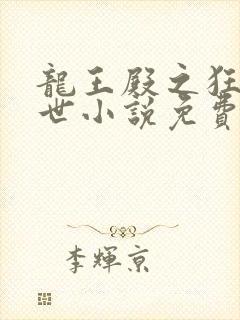 龍王殿之狂
世小說免費
李輝京